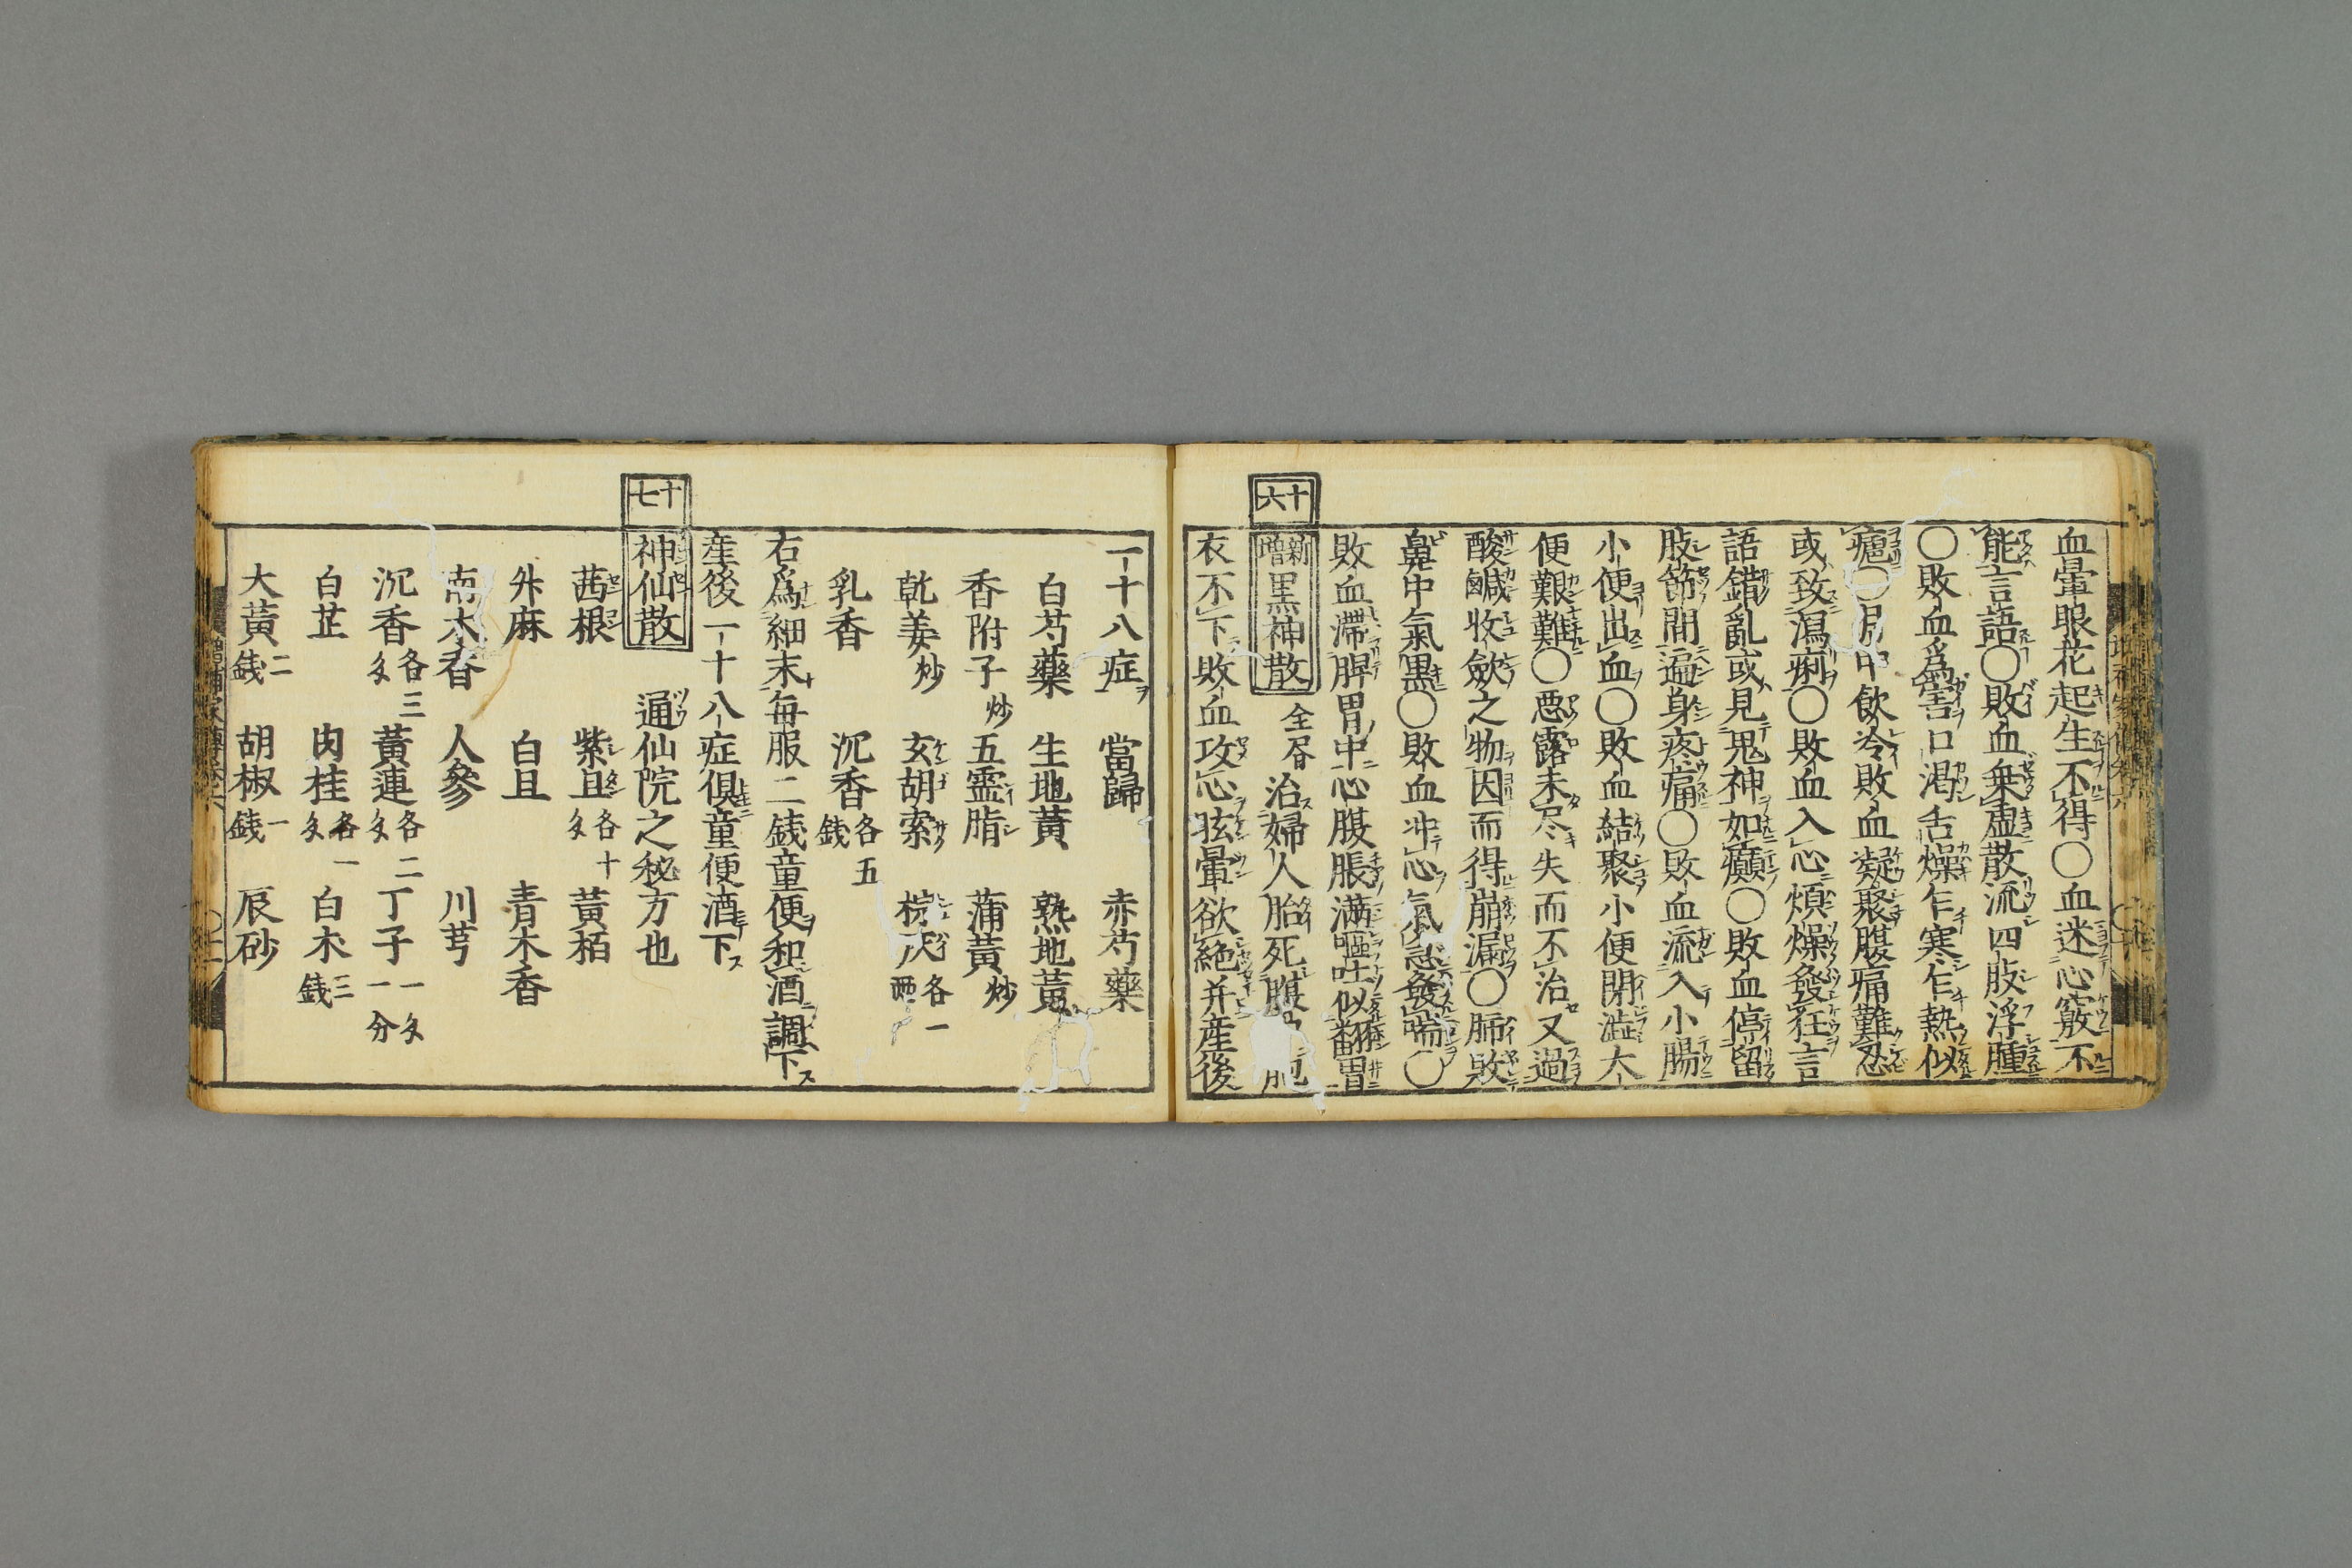 血暈眼花起生不得〇血迷心竅不
能言語〇敗血乗虚散流四肢浮腫
〇敗血爲害口渇舌燥乍寒乍熱似
瘧〇月中飲冷敗血凝聚腹痛難忍
或致瀉痢〇敗血入心煩燥發狂言
語錯亂或見鬼神如癲〇敗血停留
肢節間遍身疼痛〇敗血流入小腸
小便出血〇敗血結聚小便閉澁大
便艱難〇悪露未尽失而不治又過
酸鹹收歛之物因而得崩漏〇肺敗
鼻中氣黒〇敗血冲心氣急發喘〇
敗血滞脾胃中心腹脹満嘔吐似翻胃
十六
新増黒神散 仝昼 治婦人胎死腹 胞
衣不下敗血攻心眩暈欲絶并産後
一十八症 當歸 赤芍藥
白芍藥 生地黄 熟地黄
香附子炒 五霊脂 蒲黄炒
乾姜炒 玄胡索 棕灰各一両
乳香 沉香各五銭
右爲細末毎服二銭童便和酒調下
産後一十八症倶童便酒下
十七
神仙散 通仙院之秘方也
茜根 紫且各十匁 黄栢
舛麻 白且 青木香
南木香 人參 川芎
沉香各三匁 黄連各二匁 丁子一匁一分
白芷 肉桂各一匁 白朮三銭
大黄二銭 胡椒一銭 辰砂